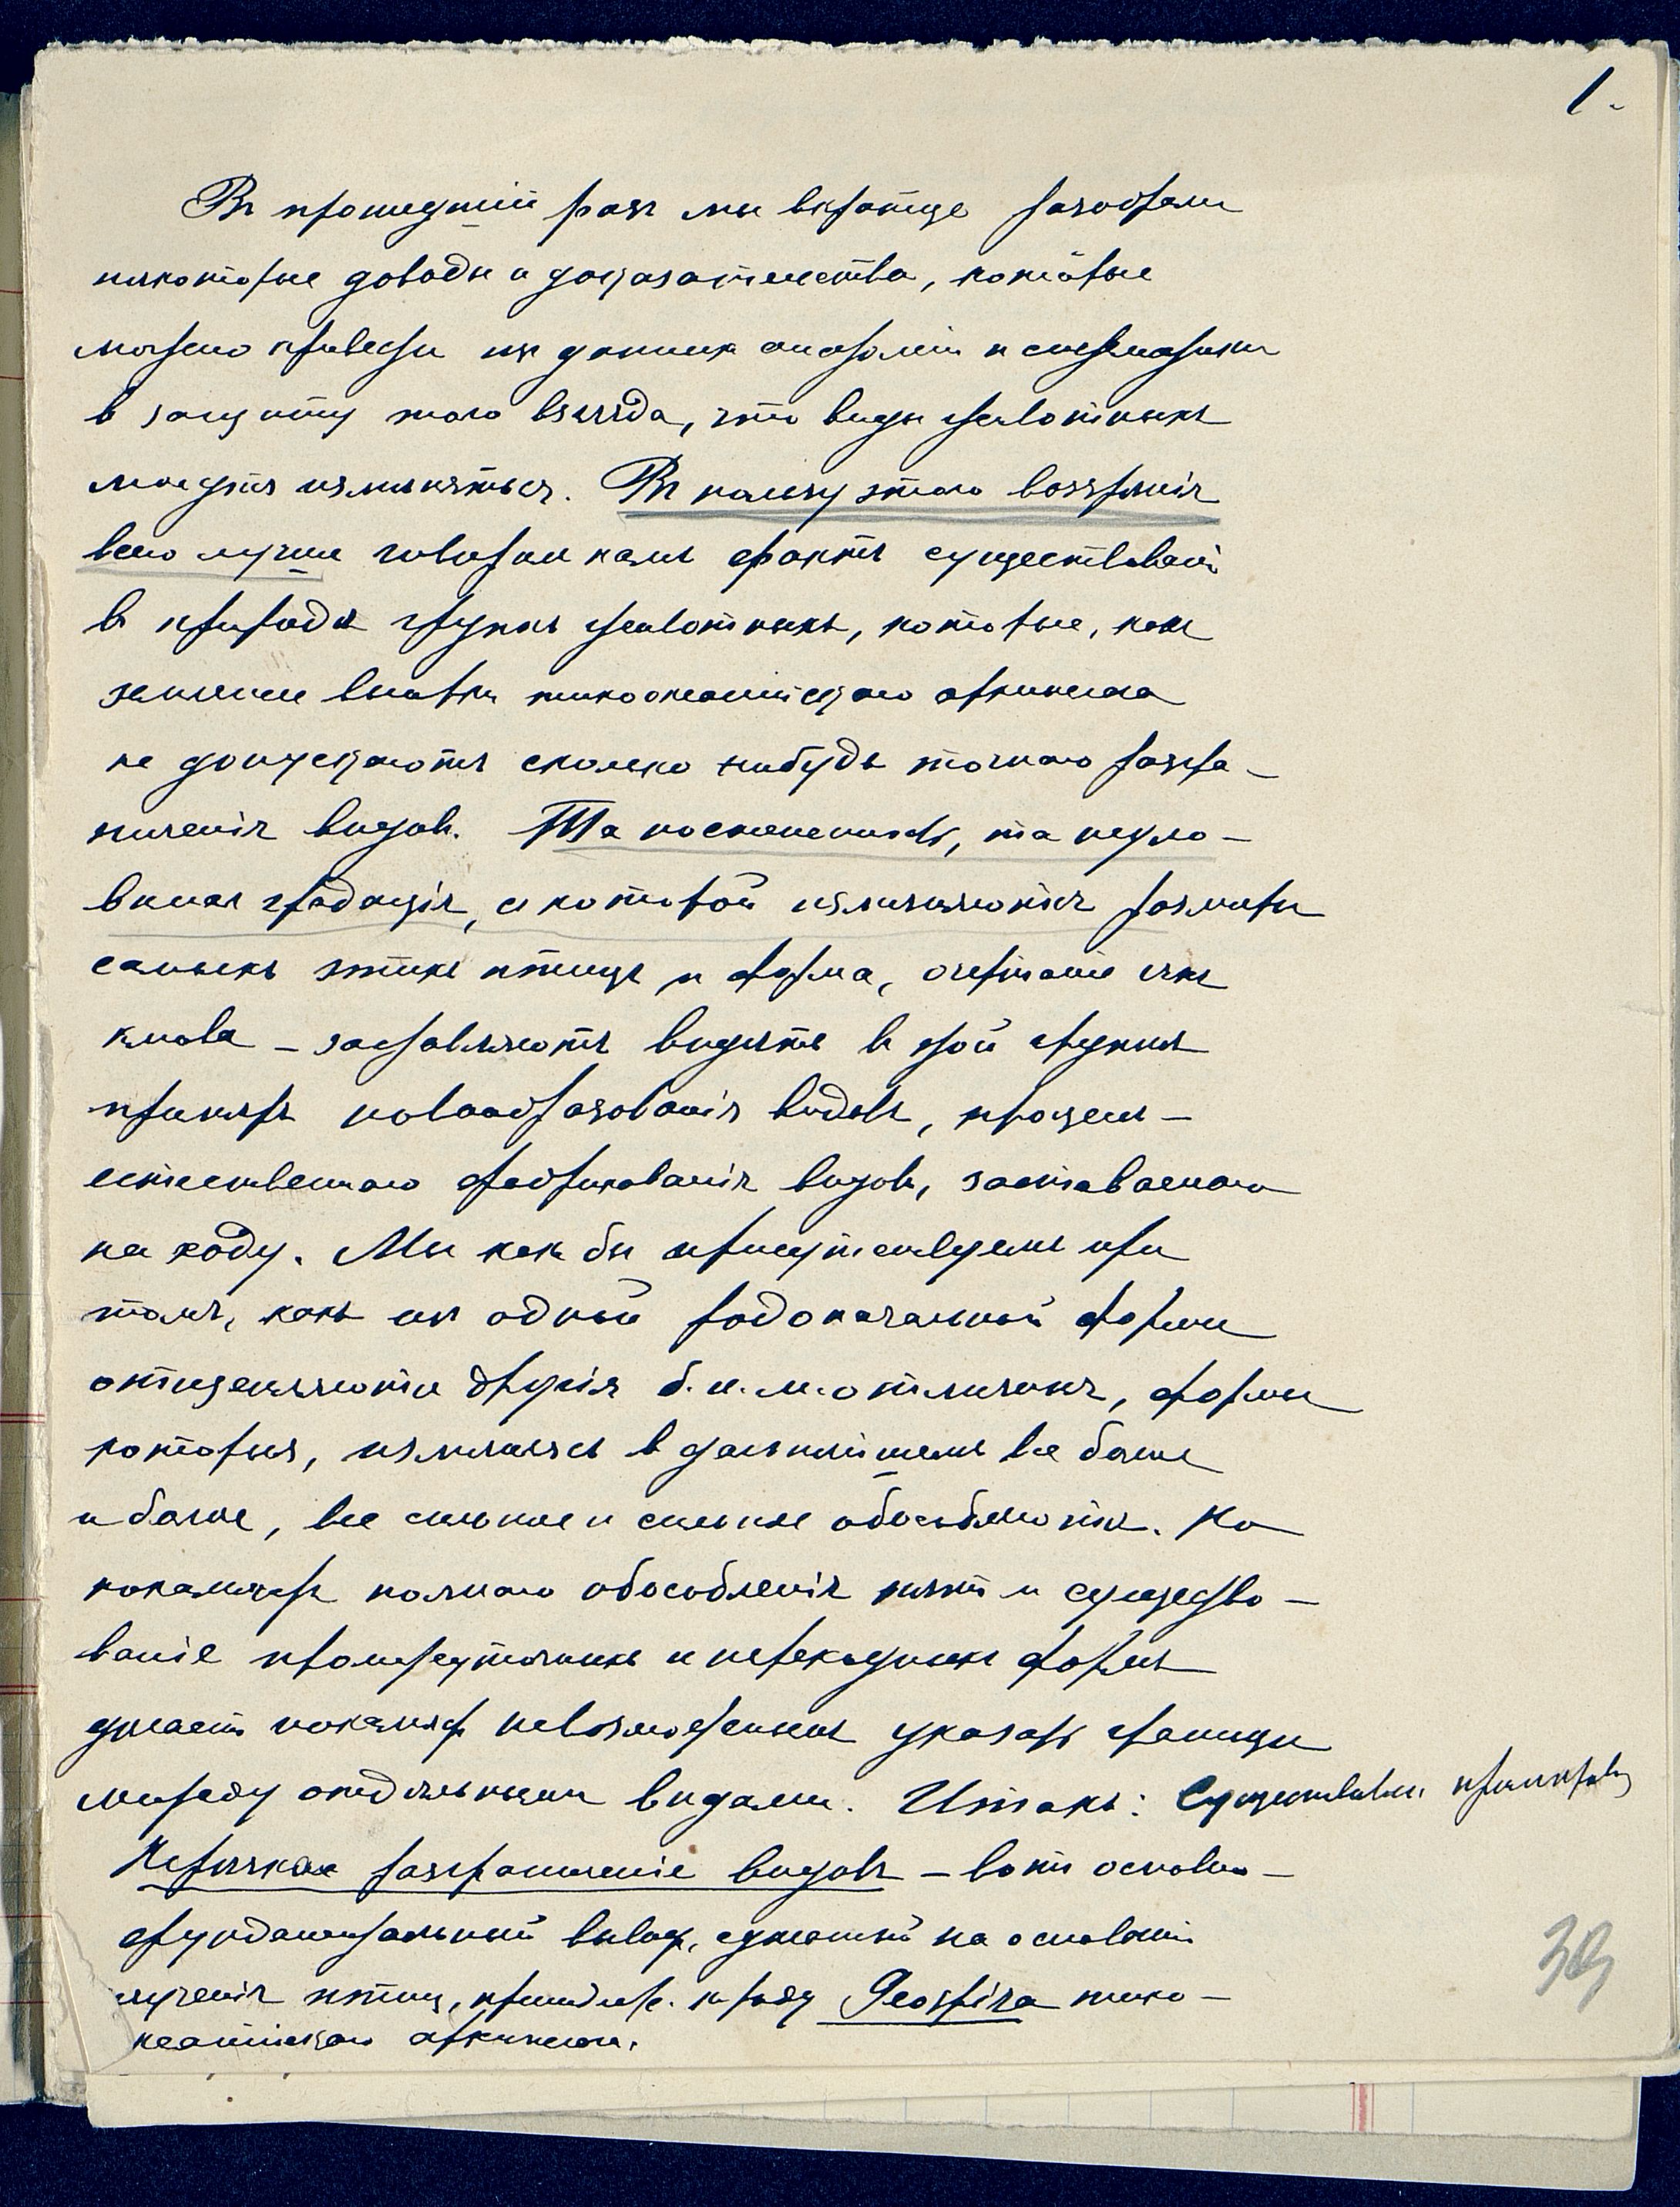 1.
Въ прошедшій разъ мы вкратце разобрали
нѣкоторые доводы и доказательства, которые
можно привести из данных анатоміи и систематики
в защиту того взгляда, что виды животныхъ
могутъ измѣняться. Въ пользу этого воззрѣнія
всего лучше говорил намъ фактъ существованія
въ природѣ группъ животныхъ, которые, какъ
вьюрки тихоокеанійскаго архипелага
не допускаютъ сколько нибудь точнаго разгра-
ниченія видовъ. Та постепенность, та неуло-
вимая градація, с которой измѣняются размѣры
самыхъ этихъ птицъ и форма, очертаніе ихъ
клюва – заставляютъ видѣть в этой группѣ
примѣръ новообразованія видовъ, процессъ
естественнаго фабрикованія видовъ, заставаемаго
на ходу. Мы какъ бы присутствуемъ при
томъ, какъ из одной родоначальной формы
отщепляются другія б. и. м. отличныя, формы
которыя, измѣняясь в дальнѣйшемъ все болѣе
и болѣе, все сильнѣе и сильнѣе обособляются. Но
покамѣстъ полнаго обособленія нѣтъ и существо-
ваніе промежуточныхъ и переходныхъ формъ
дѣлаетъ покамѣстъ невозможнымъ указать границы
между отдѣльными видами. Итакъ:
разграниченіе видовъ – вотъ основно-
фундаментальный выводъ, сдѣланный на основаніи
изученія птицъ, принадлеж. к роду Geospiza тихо-
океанійскаго архипелага.
39